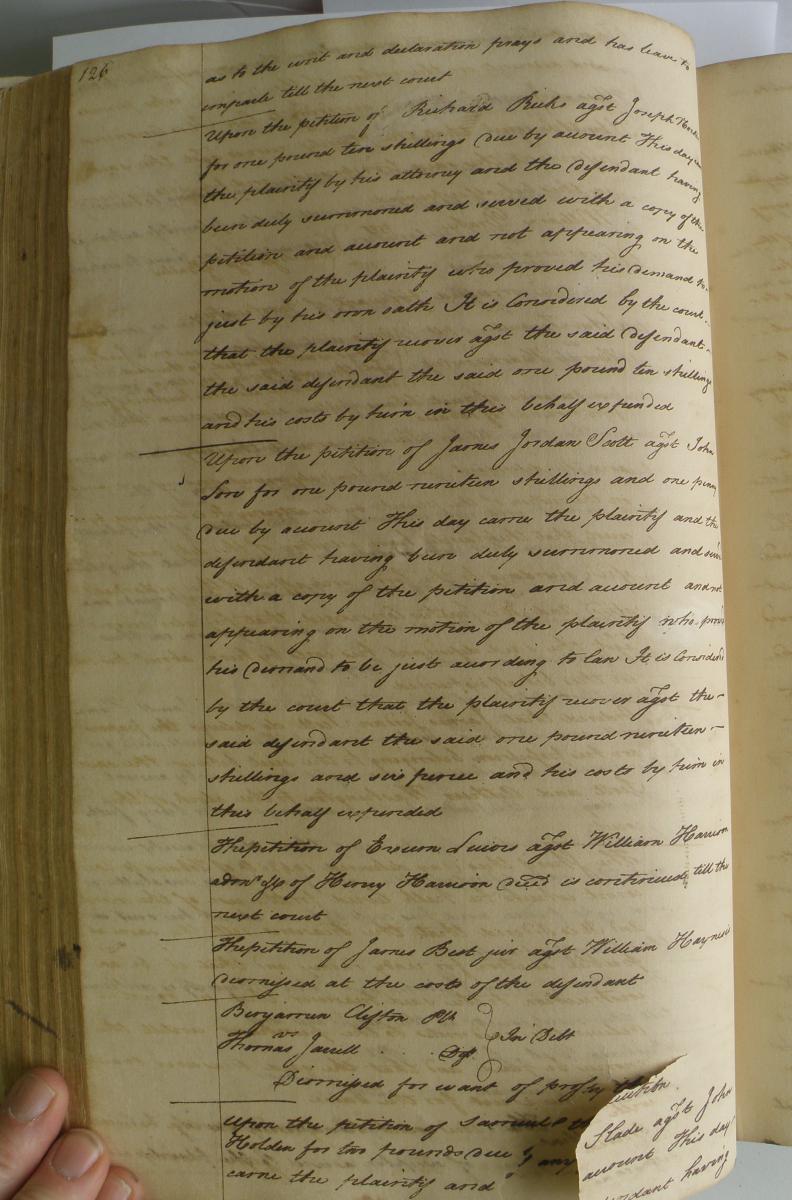 126
as to the writ and declaration prays and has leave to
imparle till the next court
Upon the petition of Richard Ricks agst Joseph
for one pound ten shillings due by account This day
the plaintif by his attorney and the defendant having
been duly summoned and served with a copy of the
petition and account and not appearing on the
motion of the plaintif who proved his demand to
just by his own oath It is Considered by the court
that the plaintif recover agst the said defendant
the said defendant the said one pound ten shillings
and his costs by him in this behalf expended
Upon the petition of James Jordan Scott agst John
for one pound nineteen shillings and one penny
due by account This day came the plaintif and the
defendant having been duly summoned and
with a copy of the petition and account and not
appearing on the motion of the plaintif who
his demand to be just according to law It is Considered
by the court that the plaintif recover agst the
said defendant the said one pound nineteen
shillings and six pence and his costs by him in
this behalf expended
The petition of Exum Lewis agst William Harrison
admr &c of Henry Harrison decd is continued till the
next court
The petition of James Best junr agst William Haynes is
dismissed at the costs of the defendant
Benjamin Clifton Plt
vs } In Debt
Thomas Jarrell Dft
Dismissed for want of prosecution
Upon the petition of Samuel Slade agst John
Holden for two pounds due by account This day
came the plaintif and defendant having